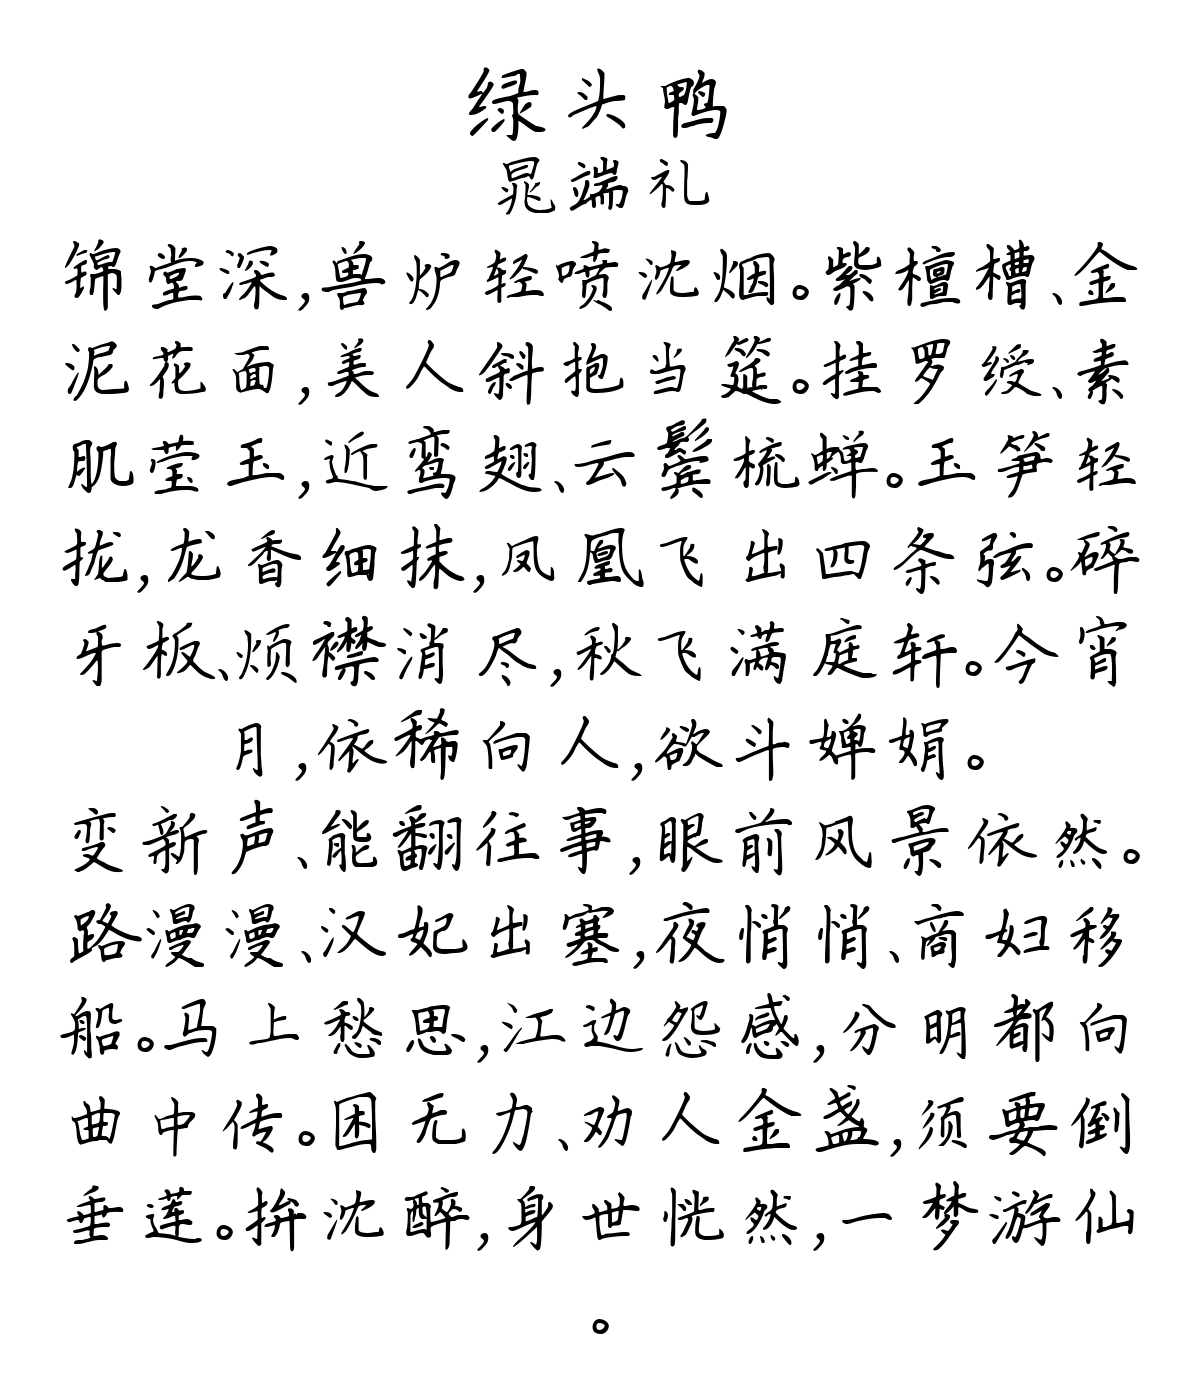 绿头鸭
晁端礼
锦堂深,兽炉轻喷沈烟。紫檀槽、金
泥花面,美人斜抱当筵。挂罗绶、素
肌莹玉,近鸾翅、云鬓梳蝉。玉笋轻
拢,龙香细抹,凤凰飞出四条弦。碎
牙板、烦襟消尽,秋飞满庭轩。今宵
月,依稀向人,欲斗婵娟。
变新声、能翻往事,眼前风景依然。
路漫漫、汉妃出塞,夜悄悄、商妇移
船。马上愁思,江边怨感,分明都向
曲中传。困无力、劝人金盏,须要倒
垂莲。拚沈醉,身世恍然,一梦游仙
。